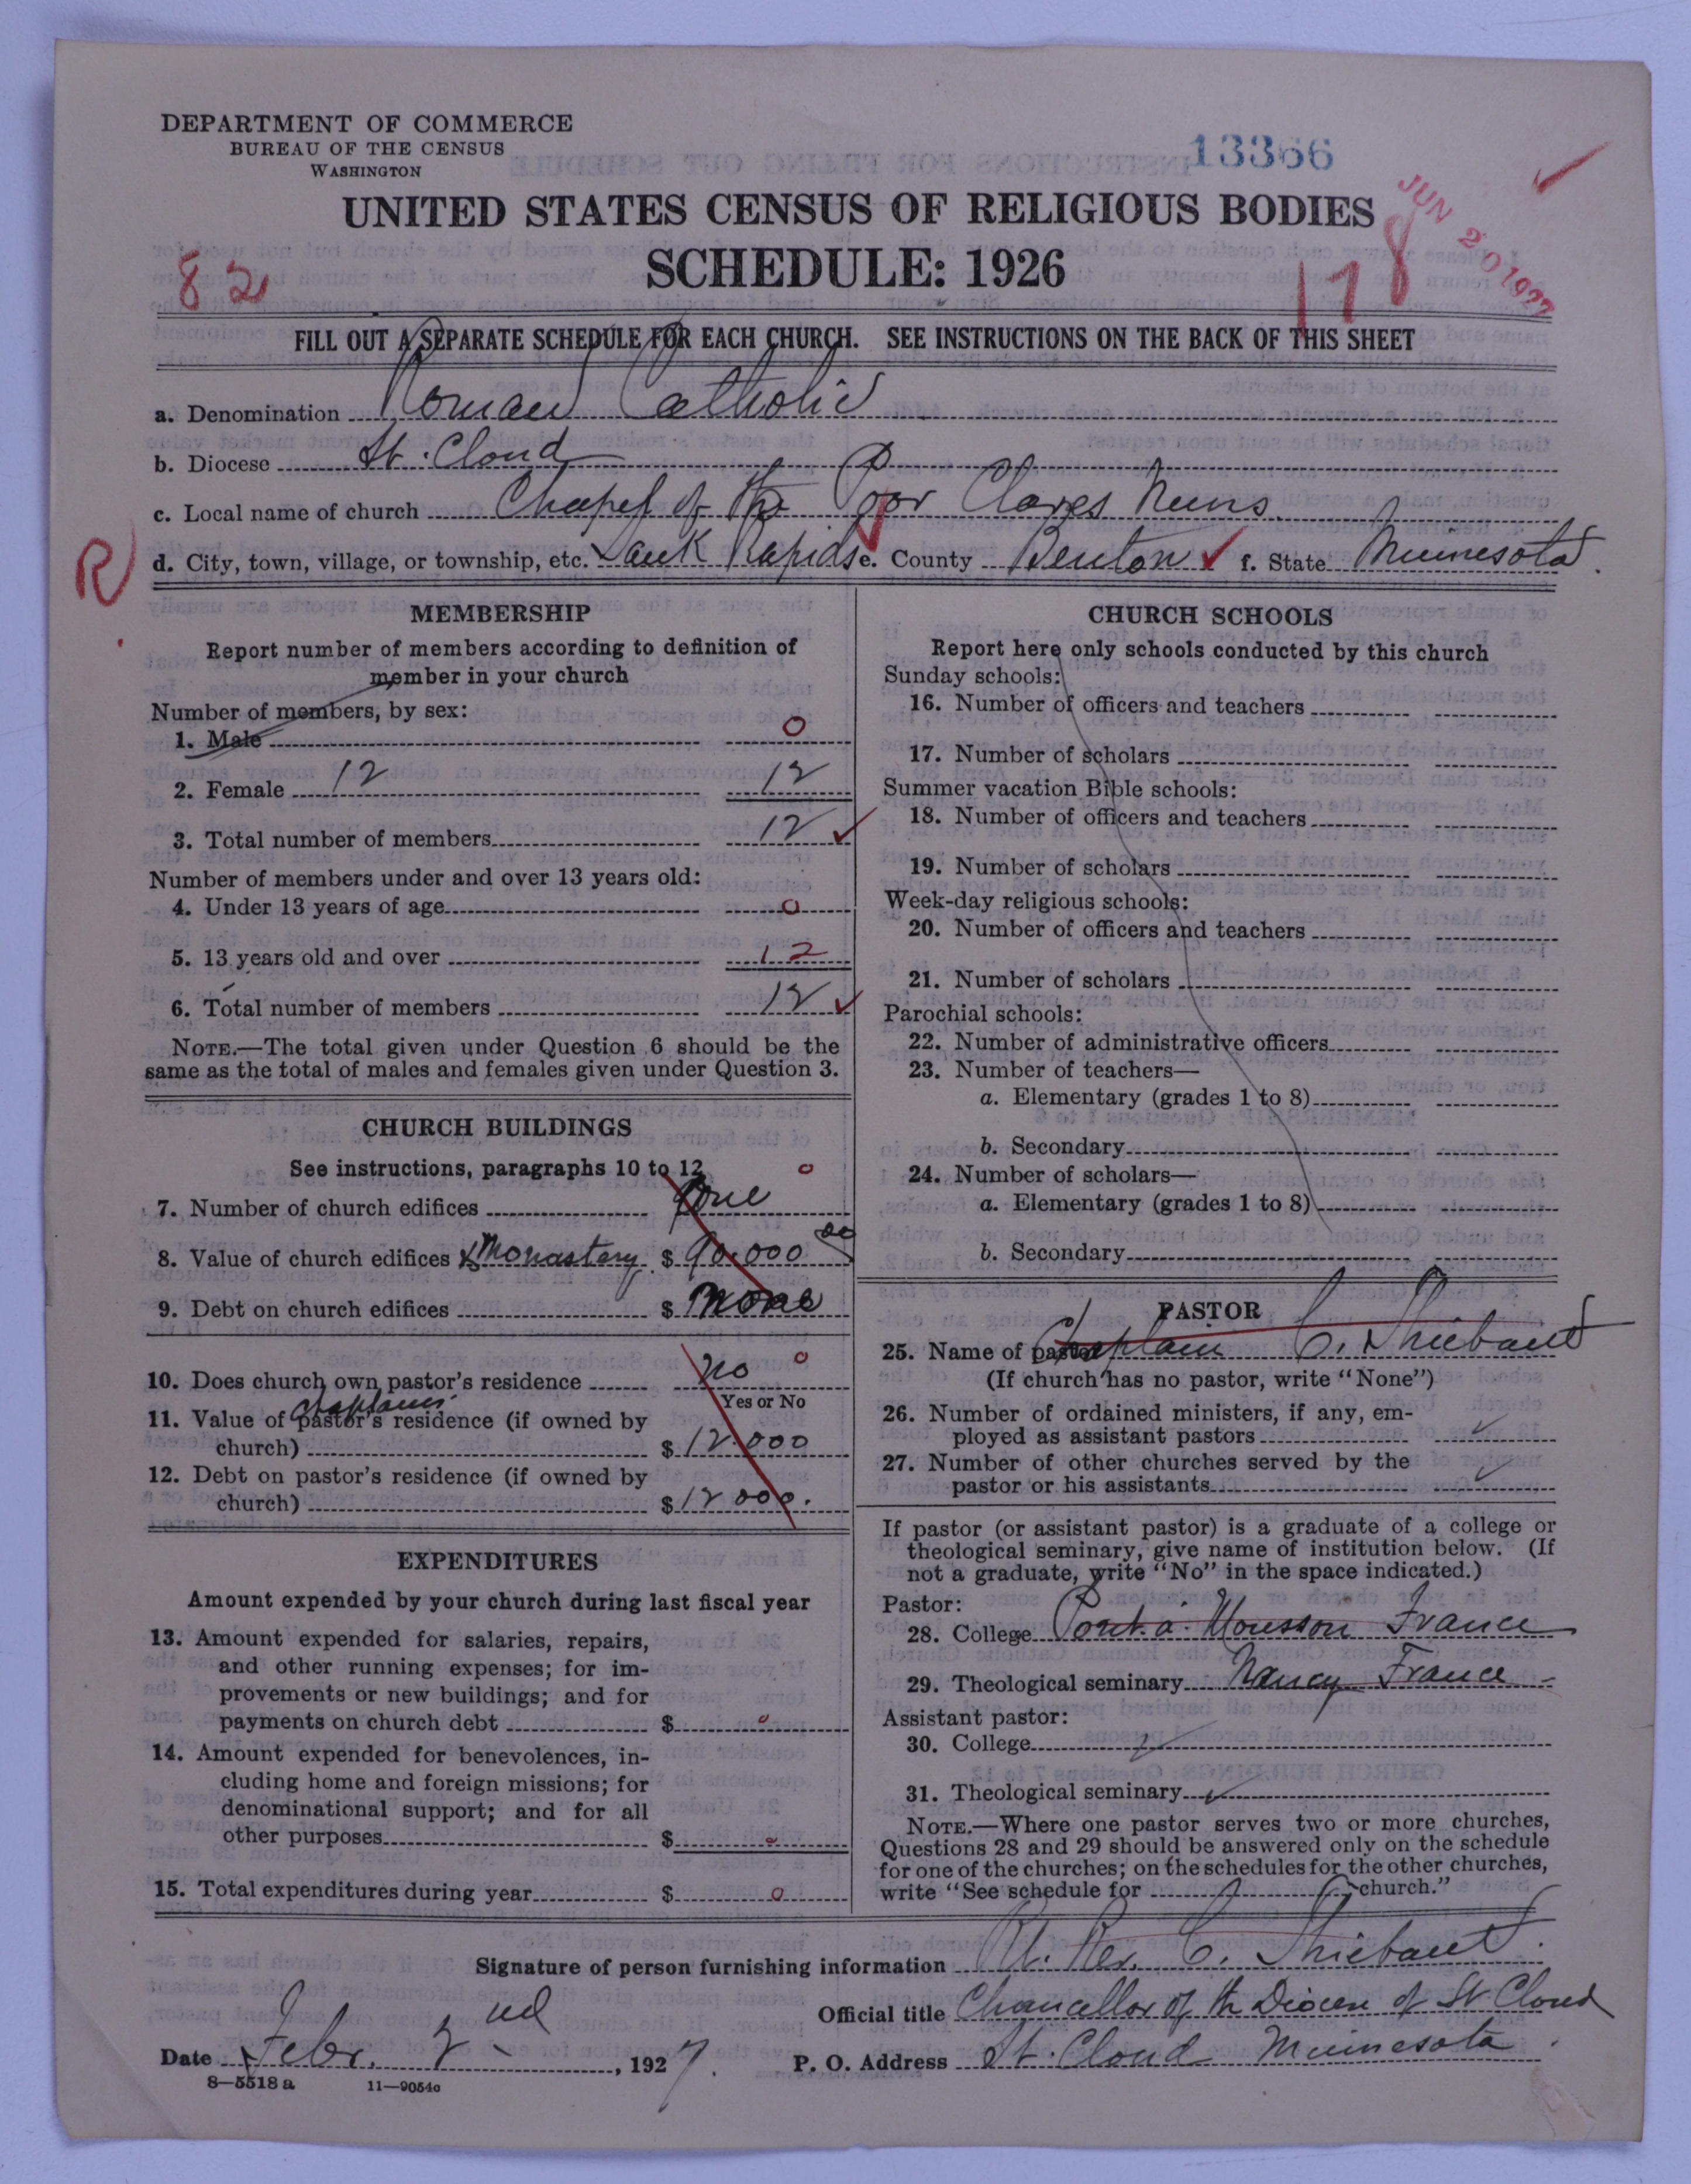 DEPARTMENT OF COMMERCE
BUREAU OF THE CENSUS
WASHINGTON
13366
JUN 20 1927
UNITED STATES CENSUS OF RELIGIOUS BODIES
82
SCHEDULE: 1926
118
FILL OUT A SEPARATE SCHEDULE FOR EACH CHURCH. SEE INSTRUCTIONS ON THE BACK OF THIS SHEET
a. Denomination Roman Catholic
b. Diocese St. Cloud
c. Local name of church Chapel of the Poor Clares Nuns
R
d. City, town, village, or township, etc. Sauk Rapids e. County Benton f. State Minnesota.
MEMBERSHIP
Report number of members according to definition of
member in your church
Number of members, by sex:
1. Male 0
2. Female 12 12
3. Total number of members 12
Number of members under and over 13 years old:
4. Under 13 years of age 0
5. 13 years old and over 12
6. Total number of members 12
NOTE.—The total given under Question 6 should be the
same as the total of males and females given under Question 3.
CHURCH BUILDINGS
See instructions, paragraphs 10 to 12 0
7. Number of church edifices One
8. Value of church edifices & Monastery $ 90.000 00
9. Debt on church edifices $ None
10. Does church own pastor's residence No 0
Yes or No
chaplain's
11. Value of pastor's residence (if owned by
church) $ 12.000
12. Debt on pastor's residence (if owned by
church) $ 12 000.
EXPENDITURES
Amount expended by your church during last fiscal year
13. Amount expended for salaries, repairs,
and other running expenses; for im-
provements or new buildings; and for
payments on church debt $ 0
14. Amount expended for benevolences, in-
cluding home and foreign missions; for
denominational support; and for all
other purposes $ 0
15. Total expenditures during year $ 0
CHURCH SCHOOLS
Report here only schools conducted by this church
Sunday schools:
16. Number of officers and teachers
17. Number of scholars
Summer vacation Bible schools:
18. Number of officers and teachers
19. Number of scholars
Week-day religious schools:
20. Number of officers and teachers
21. Number of scholars
Parochial schools:
22. Number of administrative officers
23. Number of teachers—
a. Elementary (grades 1 to 8)
b. Secondary
24. Number of scholars—
a. Elementary (grades 1 to 8)
b. Secondary
PASTOR
25. Name of pastor Chaplain C. Thiebaut
(If church has no pastor, write "None")
26. Number of ordained ministers, if any, em-
ployed as assistant pastors
27. Number of other churches served by the
pastor or his assistants
If pastor (or assistant pastor) is a graduate of a college or
theological seminary, give name of institution below. (If
not a graduate, write "No" in the space indicated.)
Pastor:
28. College Pont. a. Mousson France
29. Theological seminary Nancy France
Assistant pastor:
30. College
31. Theological seminary
NOTE.—Where one pastor serves two or more churches,
Questions 28 and 29 should be answered only on the schedule
for one of the churches; on the schedules for the other churches,
write "See schedule for church."
Signature of person furnishing information Rt. Rev. C. Thiebaut.
Official title Chancellor of the Diocese of St Cloud
Date Febr. 2nd, 1927.
P. O. Address St. Cloud Minnesota.
8—5518 a 11—9054a